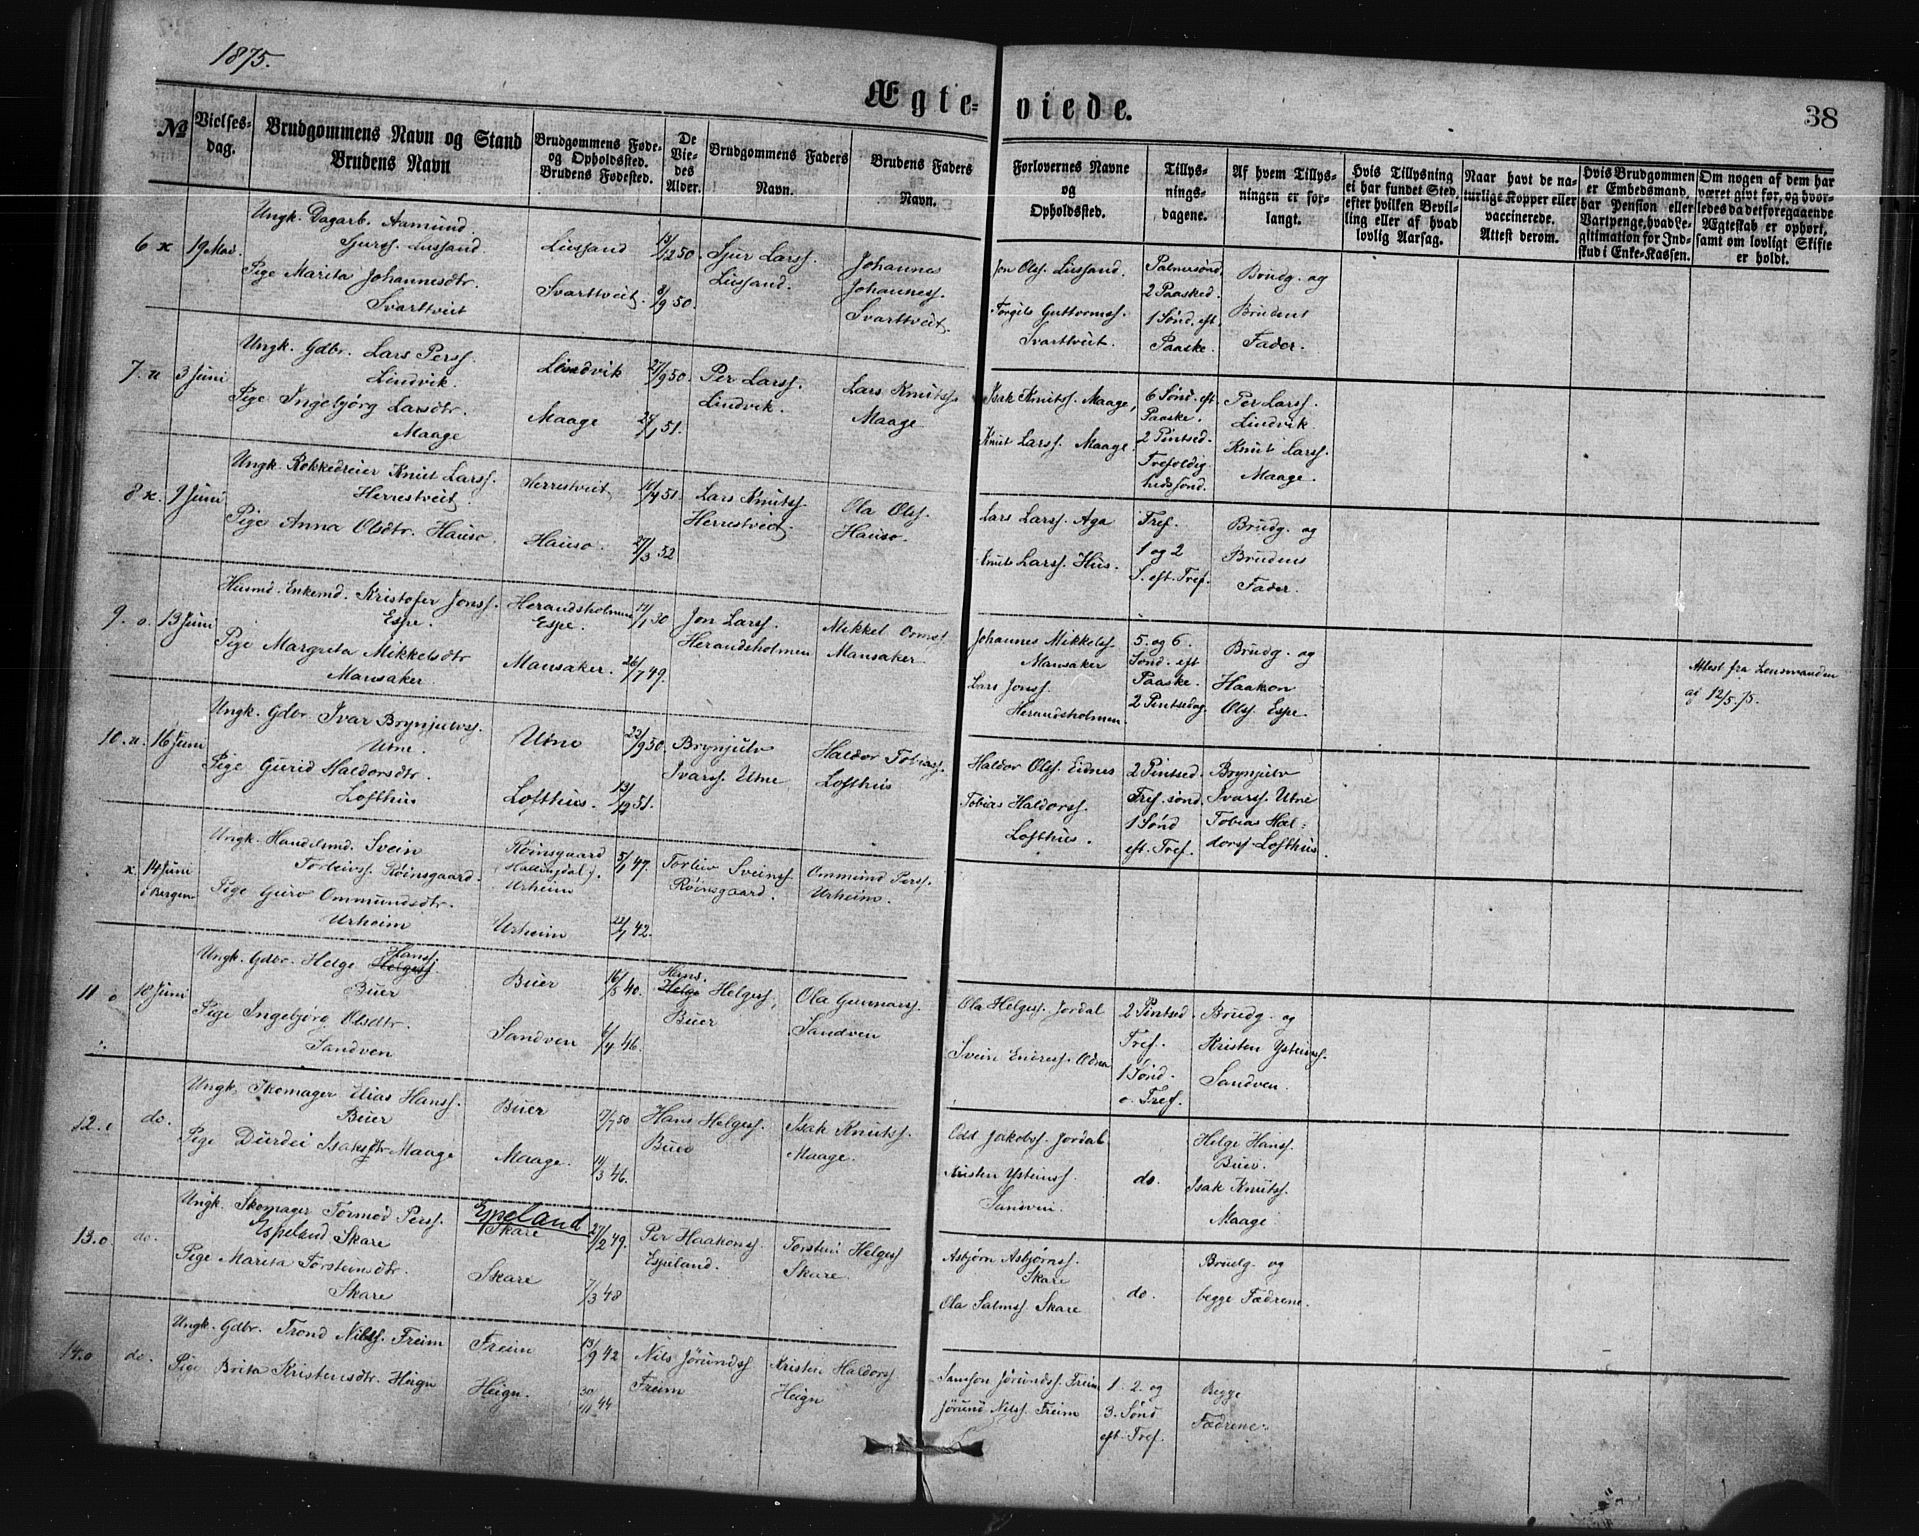 1875.
Ægteviede.
38
№
Vielses-
dag.
Brudgommens Navn og Stand
Brudens Navn
Brudgommens Føde-
og Opholdssted.
Brudens Fødested.
De
Vie-
des
Alder.
Brudgommens Faders
Navn.
Brudens Faders
Navn.
Forlovernes Navne
og
Opholdssted.
Tillys-
nings-
dagene.
Af hvem Tillys-
ningen er for-
langt.
Hvis Tillysning
ei har fundet Sted,
efter hvilken Bevil-
ling eller af hvad
lovlig Aarsag.
Naar havt de na-
turlige Kopper eller
vaccinerede.
Attest derom.
Hvis Brudgommen
er Embedsmand,
har Pension eller
Vartpenge, hvad Le-
gitimation for Ind-
skud i Enke-Kassen.
Om nogen af dem har
været givt før, og hvor-
ledes da det foregaaende
Ægteskab er ophørt,
samt om lovligt Skifte
er holdt.
6 x 19 Mai
Ungk. Dagarb. Aamund
Sjurss. Lussand.
Pige Marita Johannesdtr.
Svarttveit
Lussand
Svarttveit.
13/12 50.
8/9 50.
Sjur Larss.
Lussand.
Johannes
Johanness.
Svarttveit.
Jon Olss. Lussand.
Torgils Guttormss.
Svarttveit.
Palmesønd.
2 Paasked.
1 Sønd. eft.
Paaske.
Brudg. og
Brudens
Fader.
7. 3 Juni
Ungk. Gdbr. Lars Perss.
Lindvik.
Pige Ingebjørg Larsdtr.
Maage
Lindvik
Maage
27/9 50.
24/1 51.
Per Larss.
Lindvik.
Lars Knutss.
Maage
Isak Knutss. Maage,
Knut Larss. Maage.
6 Sønd. eft
Paaske.
2 Pintsed.
Trefoldig
hedssønd.
Per Larss.
Lindvik
Knut Larss.
Maage.
8 x. 9 Juni
Ungk. Rokkedreier Knut Larss.
Herrestveit
Pige Anna Olsdtr. Hauso.
Herrestveit
Hauso.
10/4 51.
27/3 52
Lars Knutss.
Herrestveit.
Ola Olss.
Hauso.
Lars Larss. Aga
Knut Larss. Hus.
Tref.
1 og 2
S. eft. Tref.
Brudg. og
Brudens
Fader.
9. o. 13 Juni
Husmd. Enkemd. Kristofer Jonss.
Espe.
Pige Margreta Mikkelsdtr
Mansaker
Herandsholmen
Espe.
Mansaker.
17/1 30
26/7 49.
Jon Larss.
Herandsholmen
Mikkel Ormss.
Mansaker
Johannes Mikkelss.
Mansaker
Lars Jonss.
Herandsholmen
5. og 6.
Sønd. eft
Paaske.
2 Pintsedag.
Brudg. og
Haakon
Olss. Espe.
Attest fra Lensmanden
af 12/5 75.
10. 16 Juni
Ungk. Gdbr. Ivar Brynjulvss.
Utne.
Pige Gurid Haldorsdtr.
Lofthus
Utne
Lofthus.
22/9 50.
13/12 51.
Brynjulv
Ivarss. Utne
Haldor Tobiass.
Lofthus
Haldor Olss. Eidnes
Tobias Haldorss.
Lofthus.
2 Pintsed.
Tref. sønd.
1 Sønd
eft. Tref.
Brynjulv
Ivarss. Utne
Tobias Hal-
dorss Lofthus.
x. 14 Juni
i Bergen
Ungk. Handelsmd. Svein
Torleivss. Röinsgaard.
Pige Guro Ommundsdtr.
Urheim
Röinsgaard
(Hallingdal).
Urheim
Urheim
5/1 47.
22/1 42.
Torleiv Sveinss.
Röinsgaard.
Ommund Perss.
Urheim.
11 o 18 Juni
Ungk. Gdbr. Helge Hanss.
Helgess.
Buer
Pige Ingebjørg Olsdtr.
Sandven
Buer
Sandven
16/8 40.
6/4 46.
Hans
Helge Helgess.
Buer
Ola Gunnarss.
Sandven
Ola Helgess. Jordal
Svein Endress. Odna
2 Pintsed.
Tref.
1 Sønd.
e. Tref.
Brudg. og
Kristen Ysteinss.
Sandven.
12. do.
Ungk. Skomager Elias Hanss.
Buer
Pige Durdei Isaksdtr Maage
Buer
Maage.
7/7 50
11/3 46.
Hans Helgess.
Buer
Isak Knutss.
Maage.
Odd Jakobss. Jordal
Kristen Ysteinss.
Sandven
do.
Helge Hanss.
Buer.
Isak Knutss.
Maage
13. o do.
Ungk. Skomager Tormod Perss.
Espeland Skare
Pige Marita Torsteinsdtr.
Skare
Espeland
Skare
Skare
27/2 49.
7/3 48
Per Haakonss.
Espeland.
Torstein Helgess
Skare
Asbjørn Asbjørnss.
Skare
Ola Salmss. Skare
do.
Brudg. og
begge Fædrene.
14. o do.
Ungk. Gdbr. Trond Nilss. Freim
Pige Brita Kristensdtr. Heign
Freim
Heign.
13/9 42
30/11 44
Nils Jörundss
Freim
Kristen Haldorss
Heign
Samson Jörundss. Freim
Jörund Nilss. Freim
1. 2. og
3. Sønd
eft. Tref.
Begge
Fædrene.